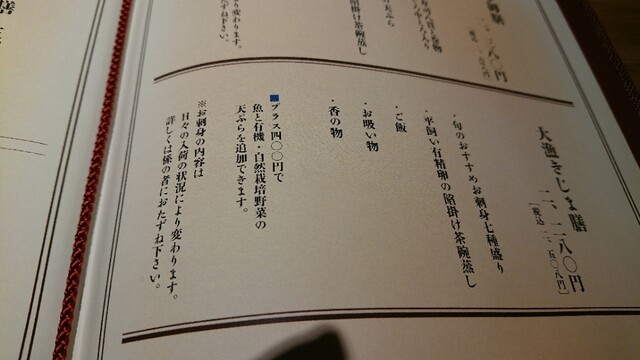 八〇円
餡掛け茶碗蒸し
天ぷら
変わります。
ずね下さい。
膳
大漁さしま膳
二、二八〇円
［税込 二、五〇八円］
・旬のおすすめお刺身七種盛り
・平飼い有精卵の餡掛け茶碗蒸し
・ご飯
・お吸い物
・香の物
■プラス四〇〇円で
魚と有機・自然栽培野菜の
天ぷらを追加できます。
※お刺身の内容は
日々の入荷の状況により変わります。
詳しくは係の者におたずね下さい。